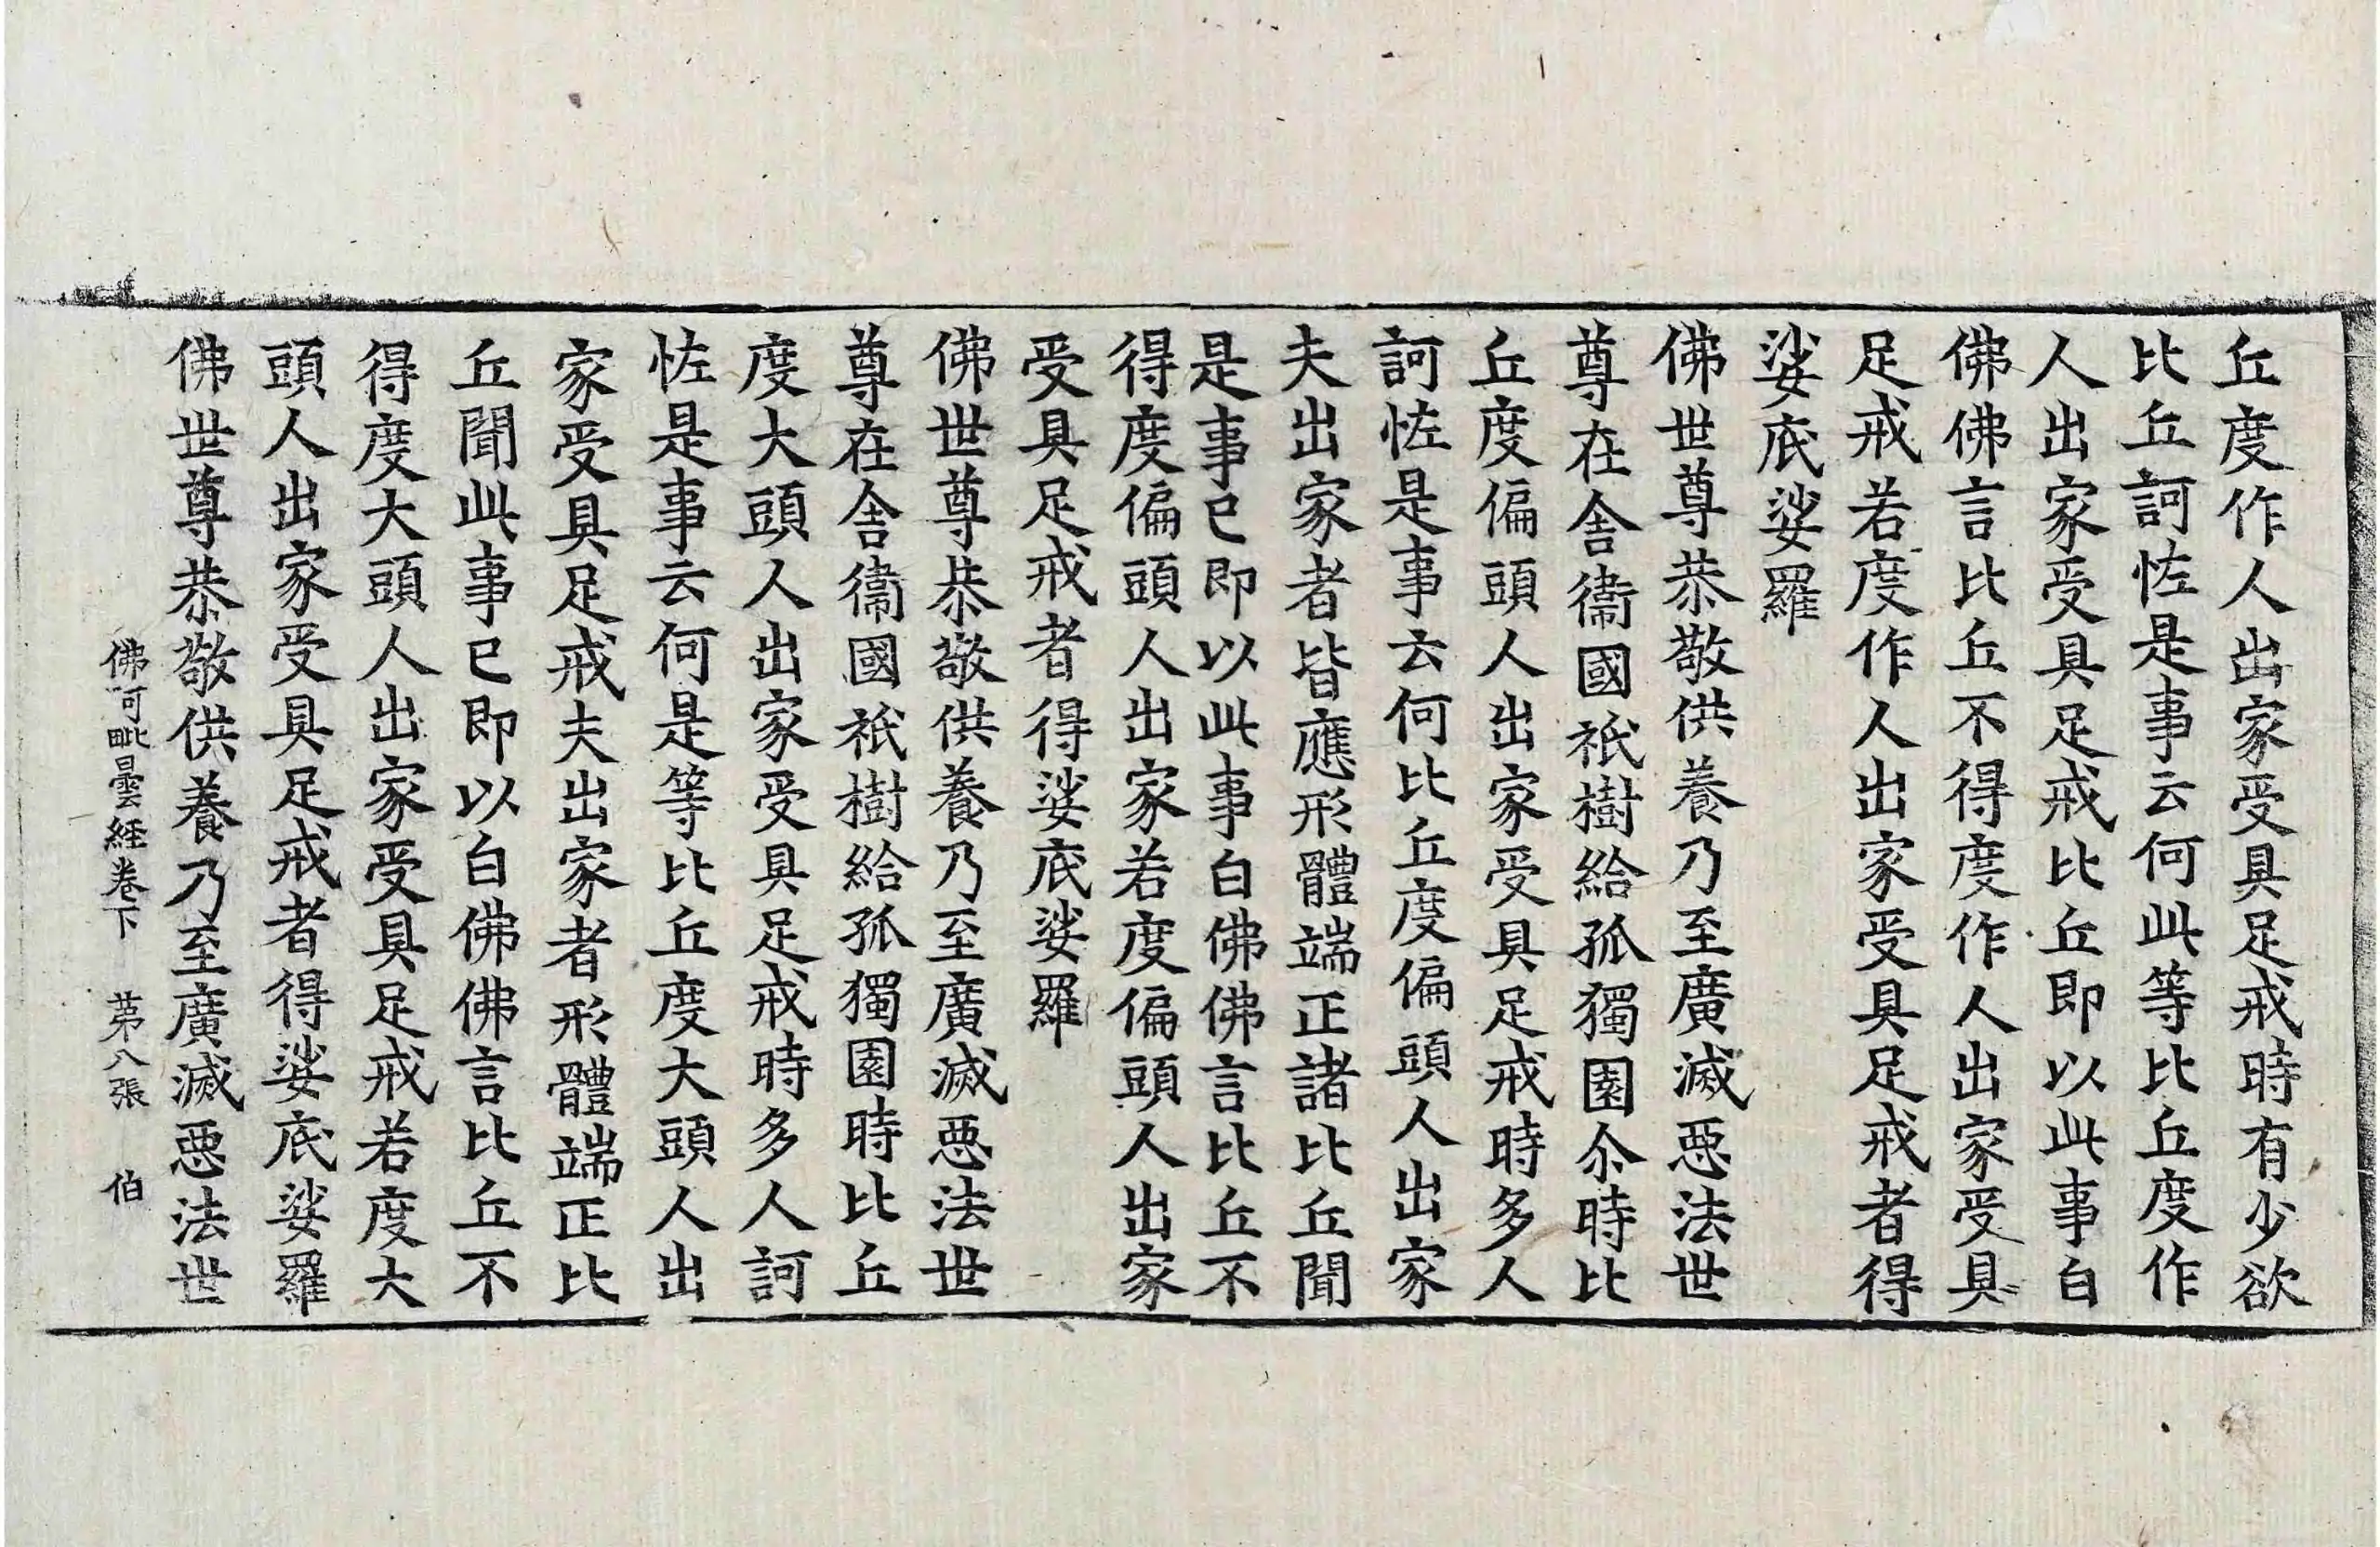 丘度作人出家受具足戒時有少欲
比丘訶恠是事云何此等比丘度作
人出家受具足戒比丘即以此事白
佛佛言比丘不得度作人出家受具
足戒若度作人出家受具足戒者得
娑底娑羅
佛世尊恭敬供養乃至廣滅惡法世
尊在舍衞國祇樹給孤獨園尒時比
丘度偏頭人出家受具足戒時多人
訶恠是事云何比丘度偏頭人出家
夫出家者皆應形體端正諸比丘聞
是事已即以此事白佛佛言比丘不
得度偏頭人出家若度偏頭人出家
受具足戒者得娑底娑羅
佛世尊恭敬供養乃至廣滅惡法世
尊在舍衞國祇樹給孤獨園時比丘
度大頭人出家受具足戒時多人訶
恠是事云何是等比丘度大頭人出
家受具足戒夫出家者形體端正比
丘聞此事已即以白佛佛言比丘不
得度大頭人出家受具足戒若度大
頭人出家受具足戒者得娑底娑羅
佛世尊恭敬供養乃至廣滅惡法世
佛阿毗曇經卷下 苐八張 伯